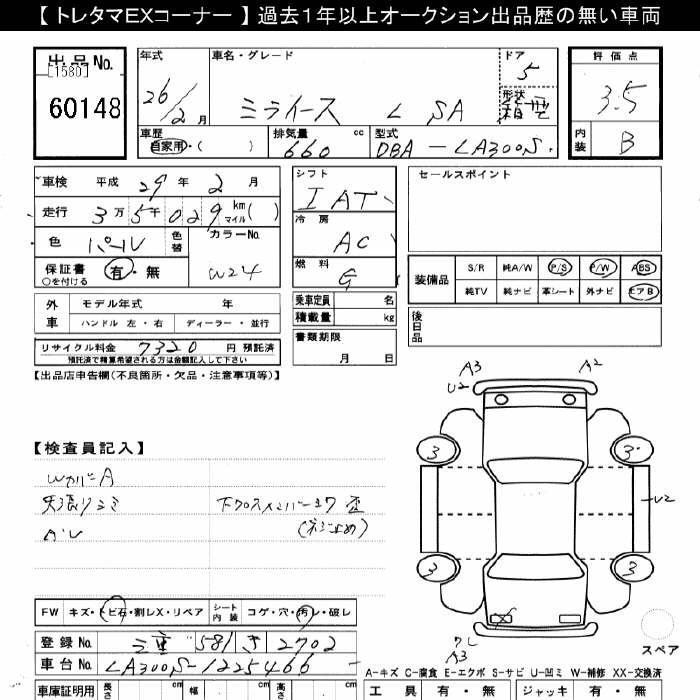 【 トレタマEXコーナー 】過去1年以上オークション出品歴の無い車両
出品No.
[1580]
60148
年式
26/2月
車名・グレード
ミライース L SA
ドア
5
形状
箱型
評価点
3.5
内装
B
車歴
自家用・( )
排気量 cc
660
型式
DBA-LA300S
車検 平成 29年 2月
走行 3万5千029 km マイル( )
色 パール 色替
カラーNo.
W24
保証書 有・無
○を付ける
シフト
IAT
冷房
AC
燃料
G
セールスポイント
装備品
S/R 純A/W P/S P/W ABS
純TV 純ナビ 革シート 外ナビ エアB
外車
モデル年式 年
ハンドル 左・右 ディーラー・並行
乗車定員 名
積載量 kg
書類期限
月 日
後日品
リサイクル料金 7320 円 預託済
預託済で精算希望される方は金額記入して下さい
【出品店申告欄(不良箇所・欠品・注意事項等)】
A3
U2
A2
【検査員記入】
WカバーA
天張りシミ
A・U
3 3
U2
3 3
X
A3
スペア
FW キズ・トビ石・割レX・リペア
シート内装 コゲ・穴・汚レ・破レ
登録No. 三重 581 き 2702
車台No. LA300S-1225466
車庫証明用 長さ cm 幅 cm 高さ cm
A-キズ C-腐食 E-エクボ S-サビ U-凹ミ W-補修 XX-交換済
工具 有・無 ジャッキ 有・無